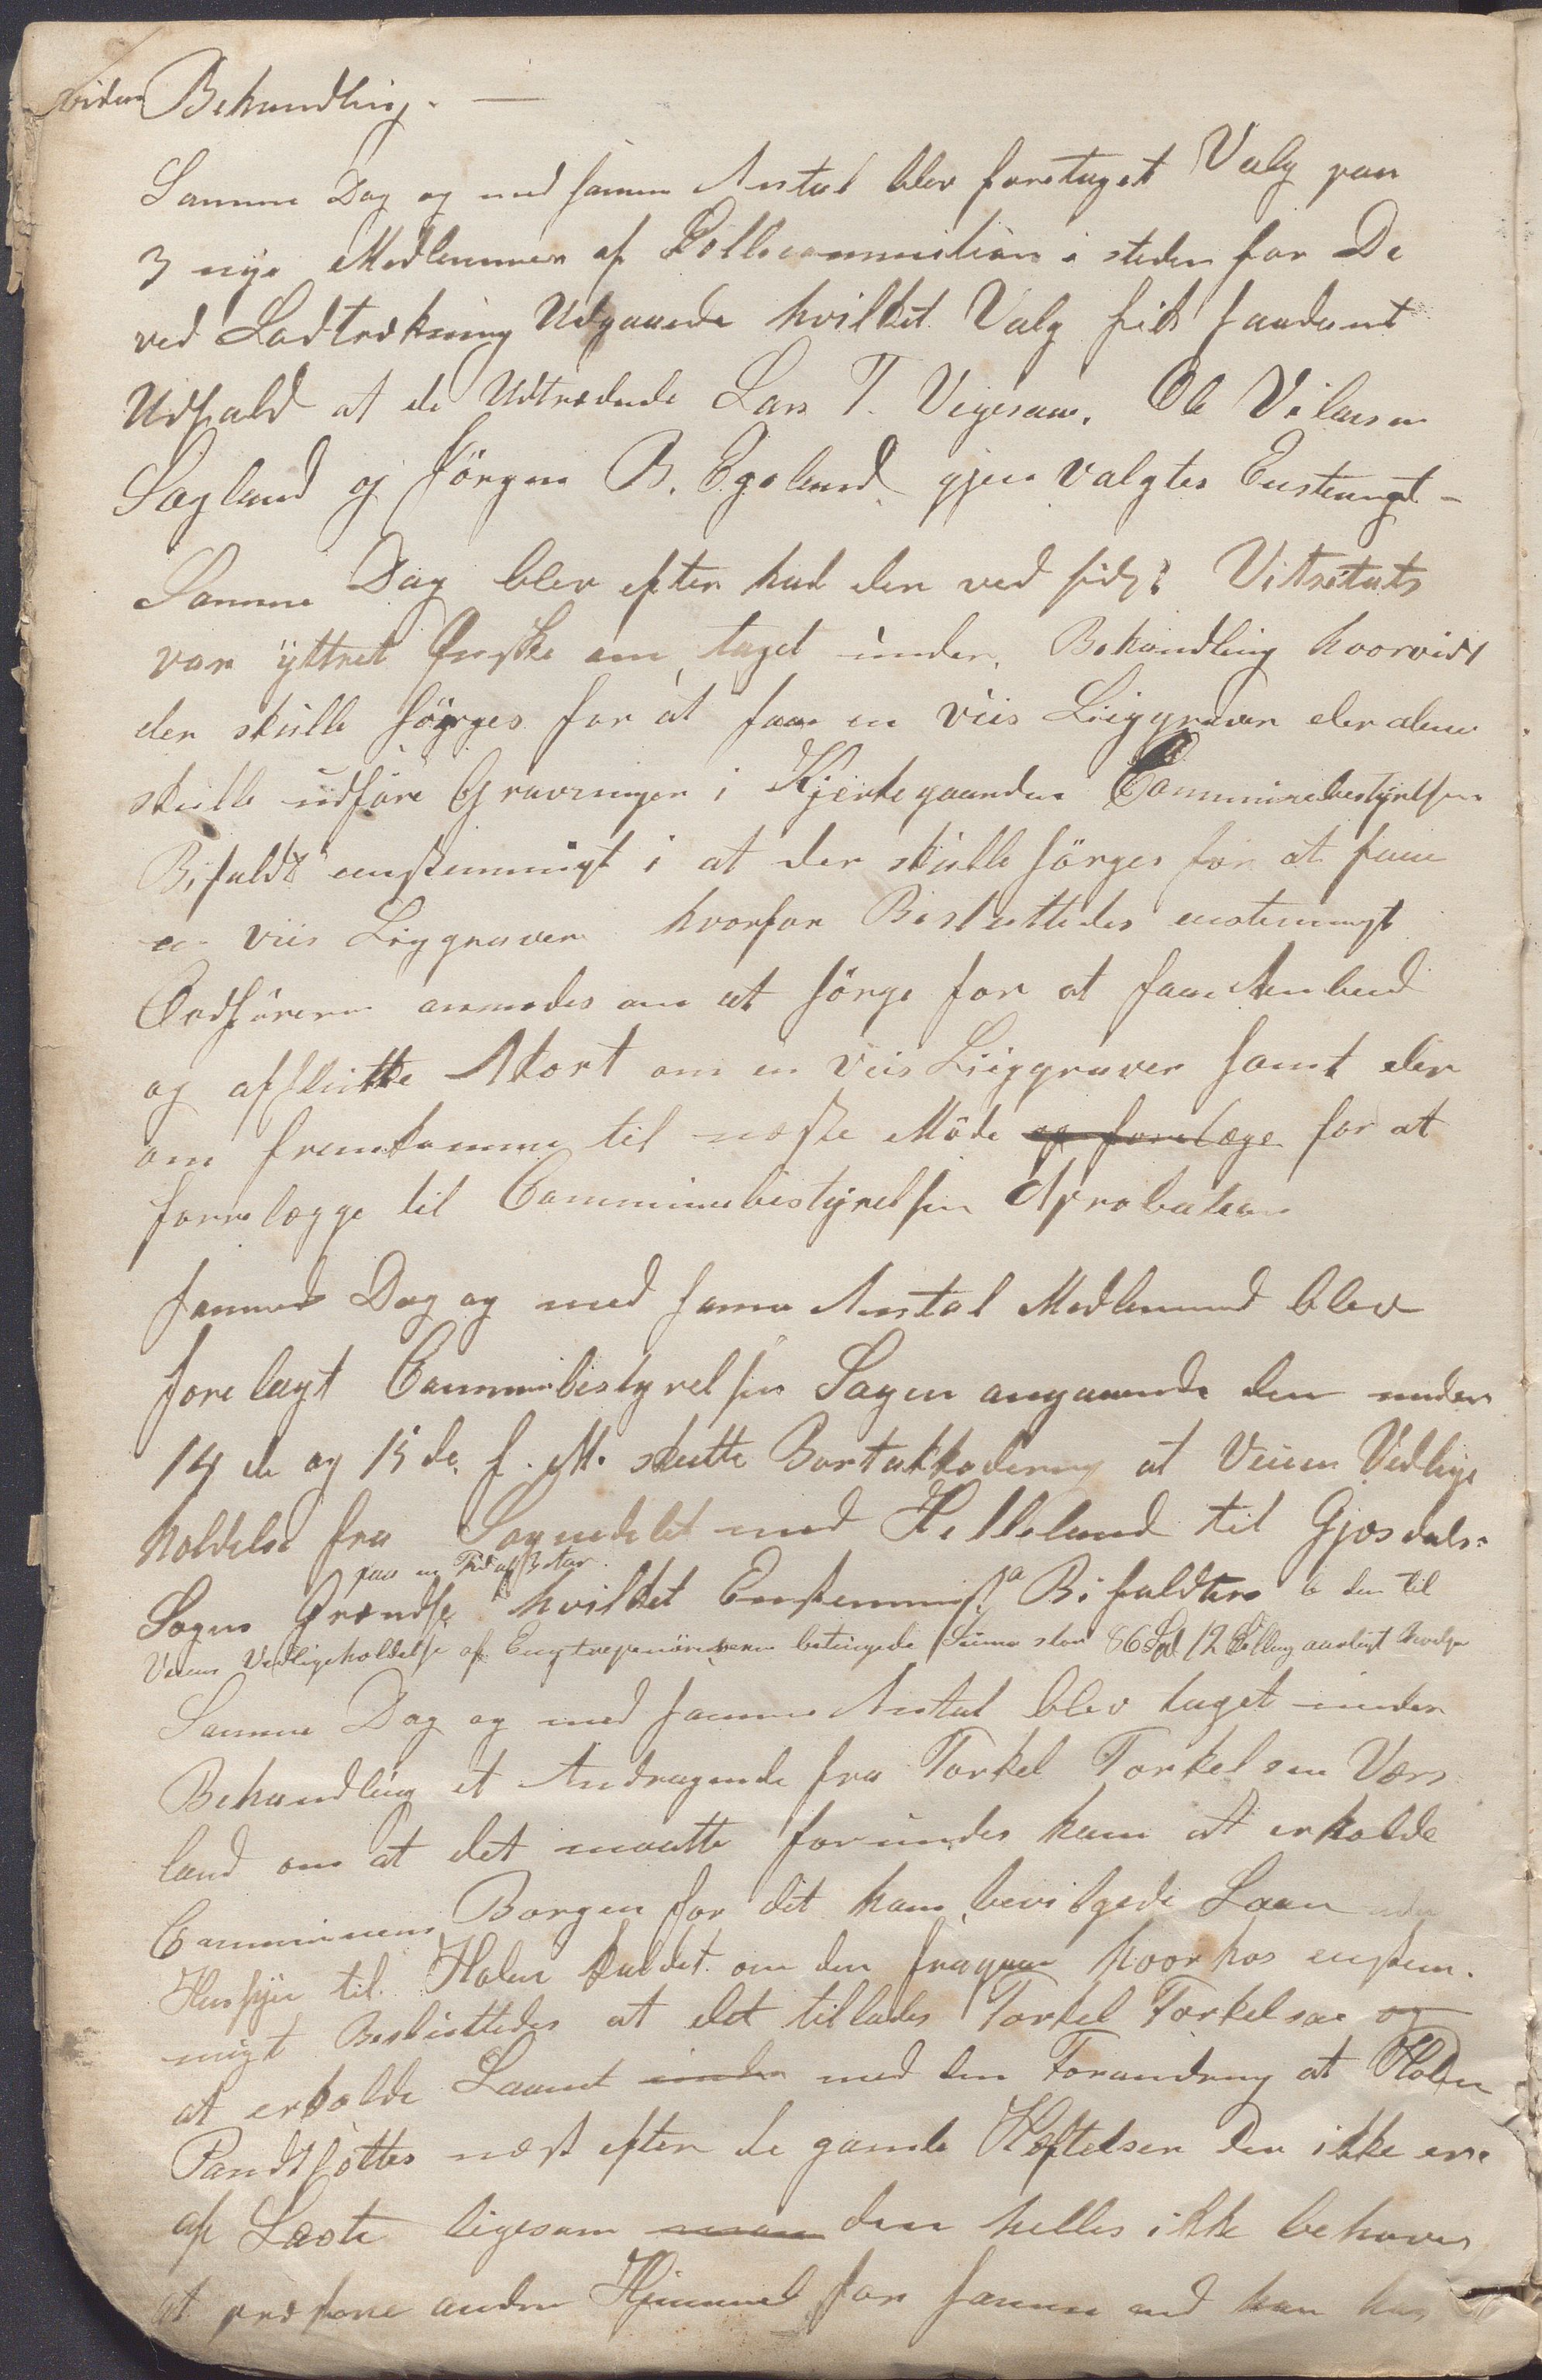 viden Behandling. —
Samme Dag og med samme Antal blev foretaget Valg paa
3 nye Medlemmer af Rollecommisiòn i steden for De
ved Lodtrækning Udgaaede hvilket Valg fik saadant
Udfald at de Udtrædende Lars T. Vigesaae. Ole Vilaisen
Sagland og Jörgen B. Egeland gjenvalgtes Enstemgt –
Samme Dag blev efter hvad der ved sidst Vitsitats
var ÿttret Ønske om taget ùnder Behandling hvorvidt
der skùlle sörges for at faae en viis Liiggraver der alene
skùlle ùdföre Gravningen i Kjerkegaarden Commùnebestÿrelsen
Bifaldt enstemmigt i at der skùlle sörges for at faae
en viis Liiggraver hvorfor Besluttedes enstemmigt
Ordföreren anmodes om at sörge for at faae Anbud
og afslùtte Akort om en viis Liiggraver samt der
om fremkomme til næste Möde og forelæge for at
forrelægge til Commùnebestÿrelsen Aprobation
samme Dag og med samme Antal Medlemmed blev
forelagt Communebestyrelsen Sagen angaaende den under
14 de og 15 de f. M. slutte Bortakkodering at Veien Vedlige
holdelse fra Sognedelet med Helleland til Gjesdals
paa en Tid af 3 Aar.
Sogns Grændse hvilket Enstemmigt Bifaldtes den til
Veiens Vedligeholdelse af Engtrepenöreren betingede Sùmma stor 86 Spd 12 Skilling aarligt
Samme Dag og med samme Antal blev taget ùnder
Behandling et Andragende fra Torkel Torkelsen Værs
land om at det maatte forùndes ham at erholde
Commùnens Borgen for det ham bevilgede Laan
til Holen kaldet om den hvorhos enstem.
migt Beslùttedes at det tillades Torkel Torkelsen og
at erholde Laanet ùnder med den Forandring at Holen
Pandtsættes næst efter de gamle Heftelser der ikke ere
af Læste ligesom man den helles ikke behøves
at præstere anden Hjemmel for samme end han har